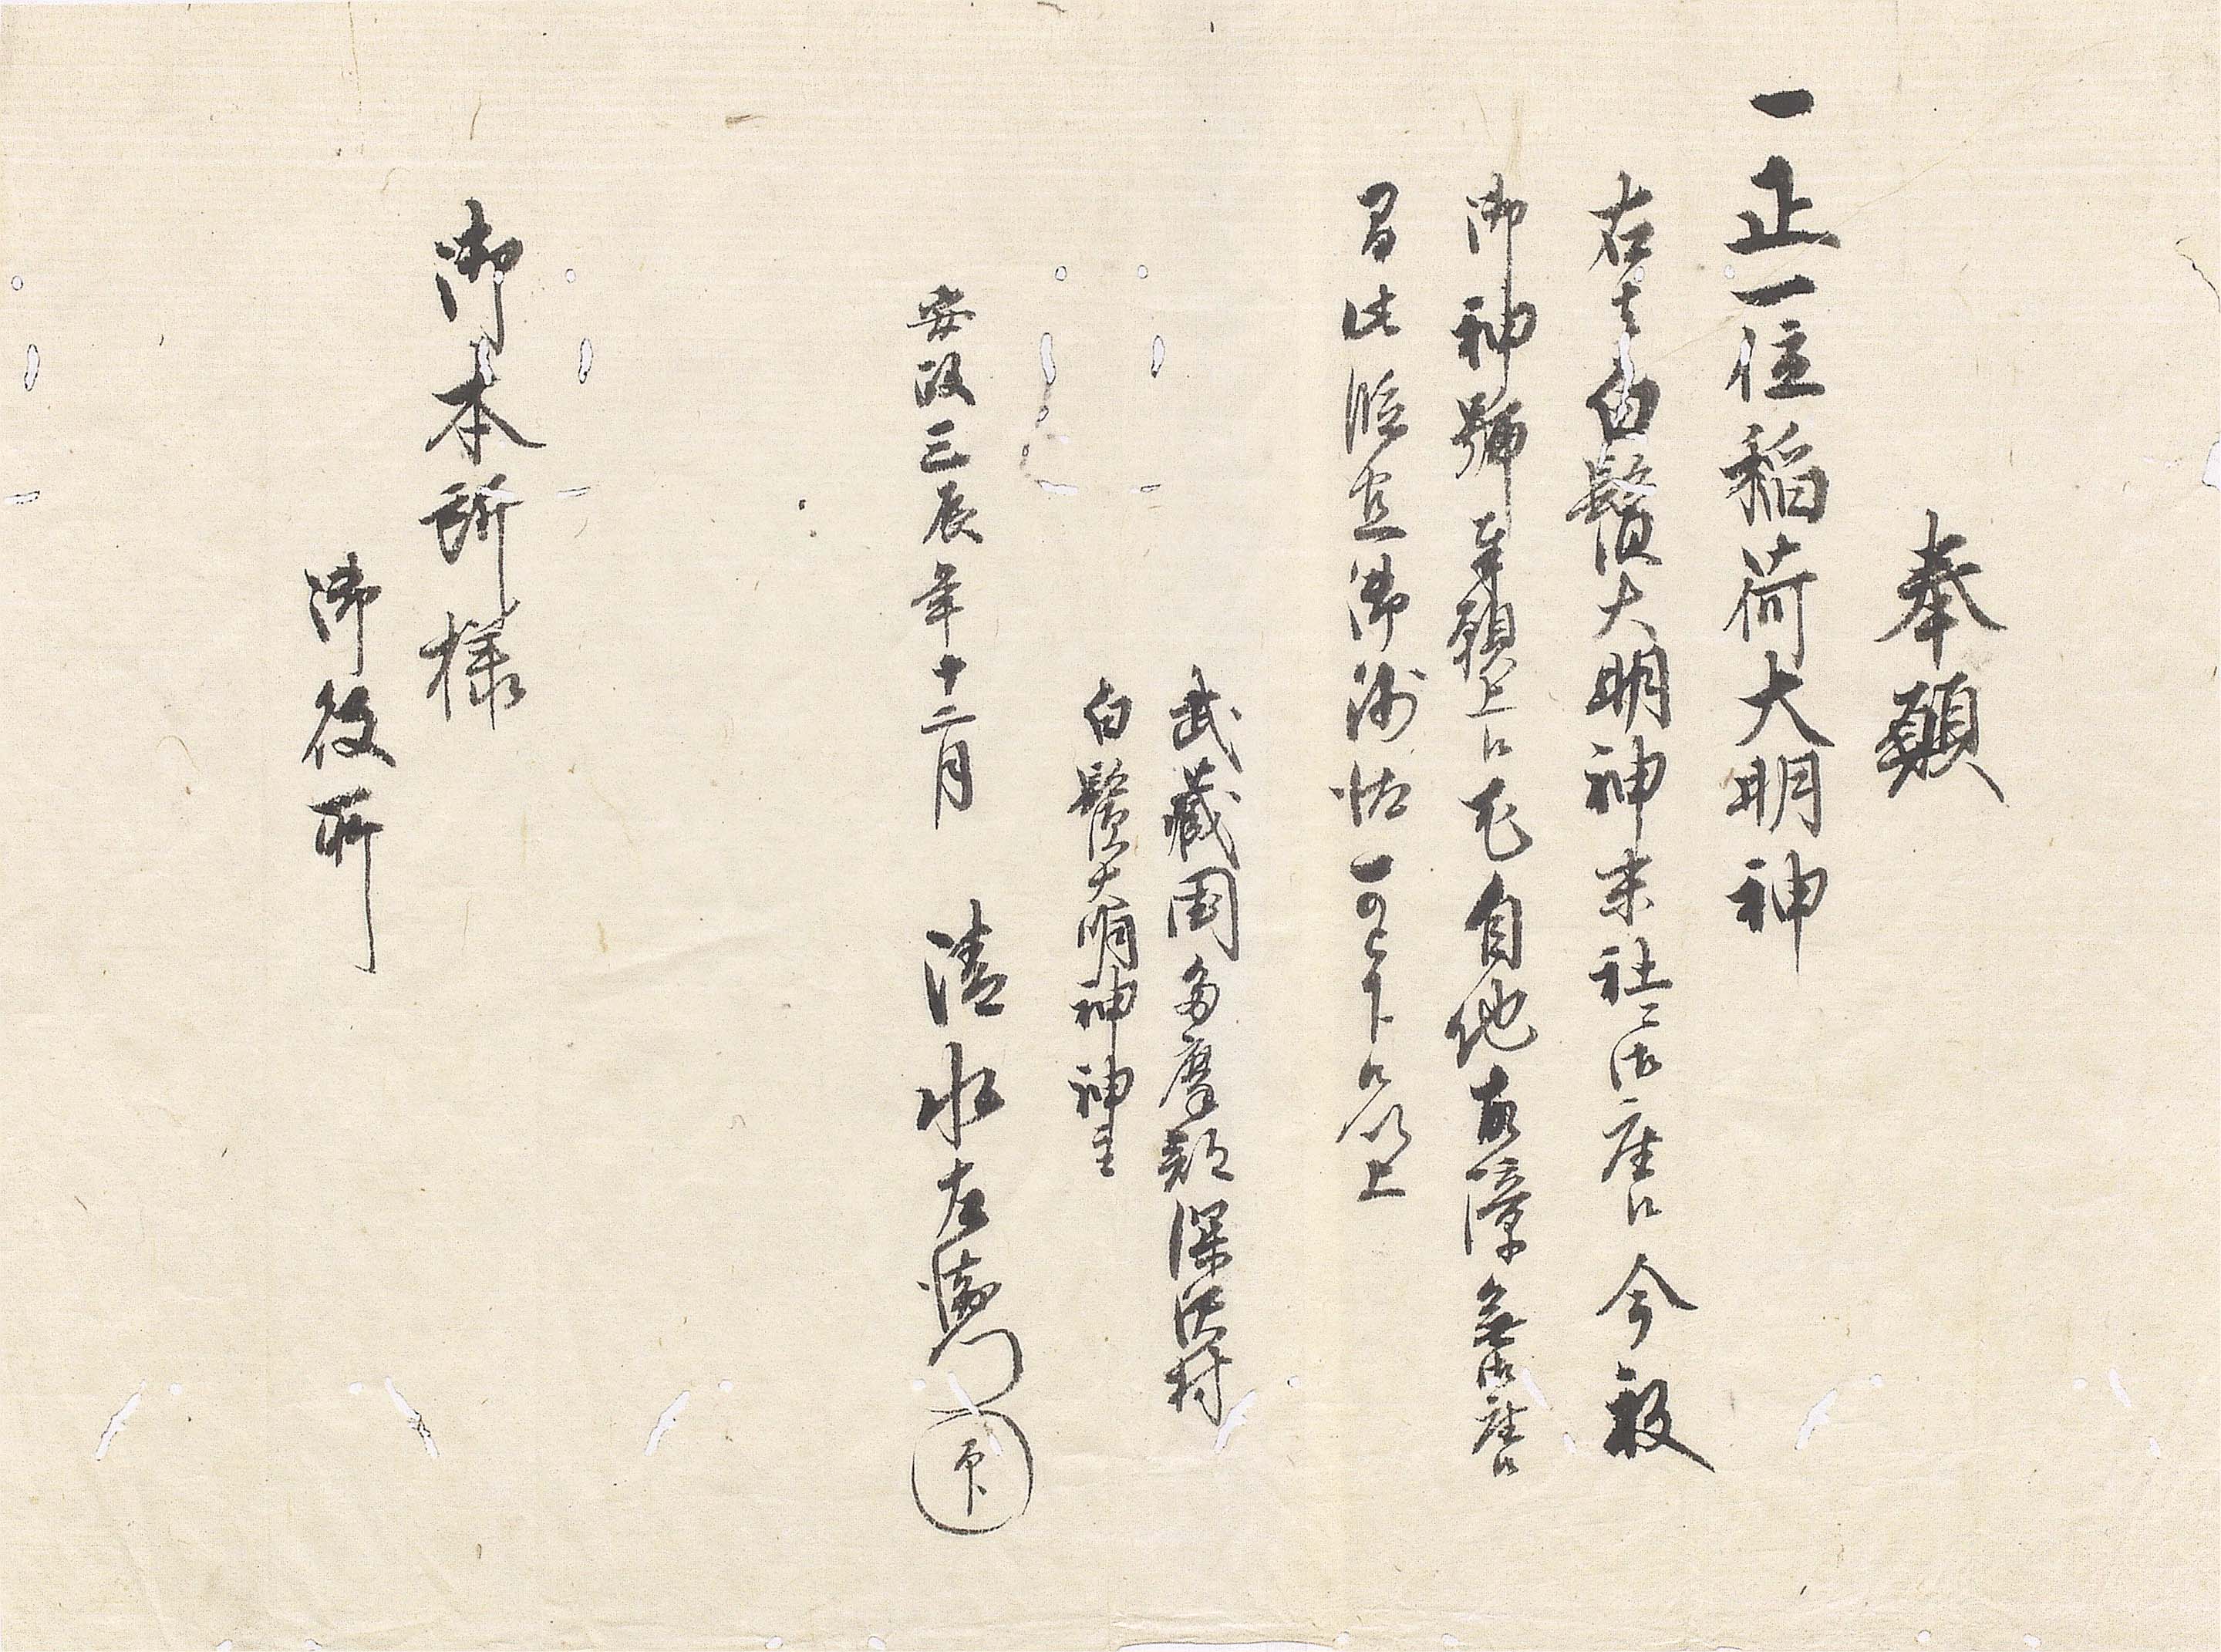 奉願
一正一位稲荷大明神
右者白鬚大明神末社ニ御座候今般
御神號奉願上候尤自他故障無御座候
間此段宜御沙汰可被下候以上
武蔵国多摩郡深沢村
白鬚大明神神主
安政三辰年十二月 清水左衛門 印
御本所様
御役所